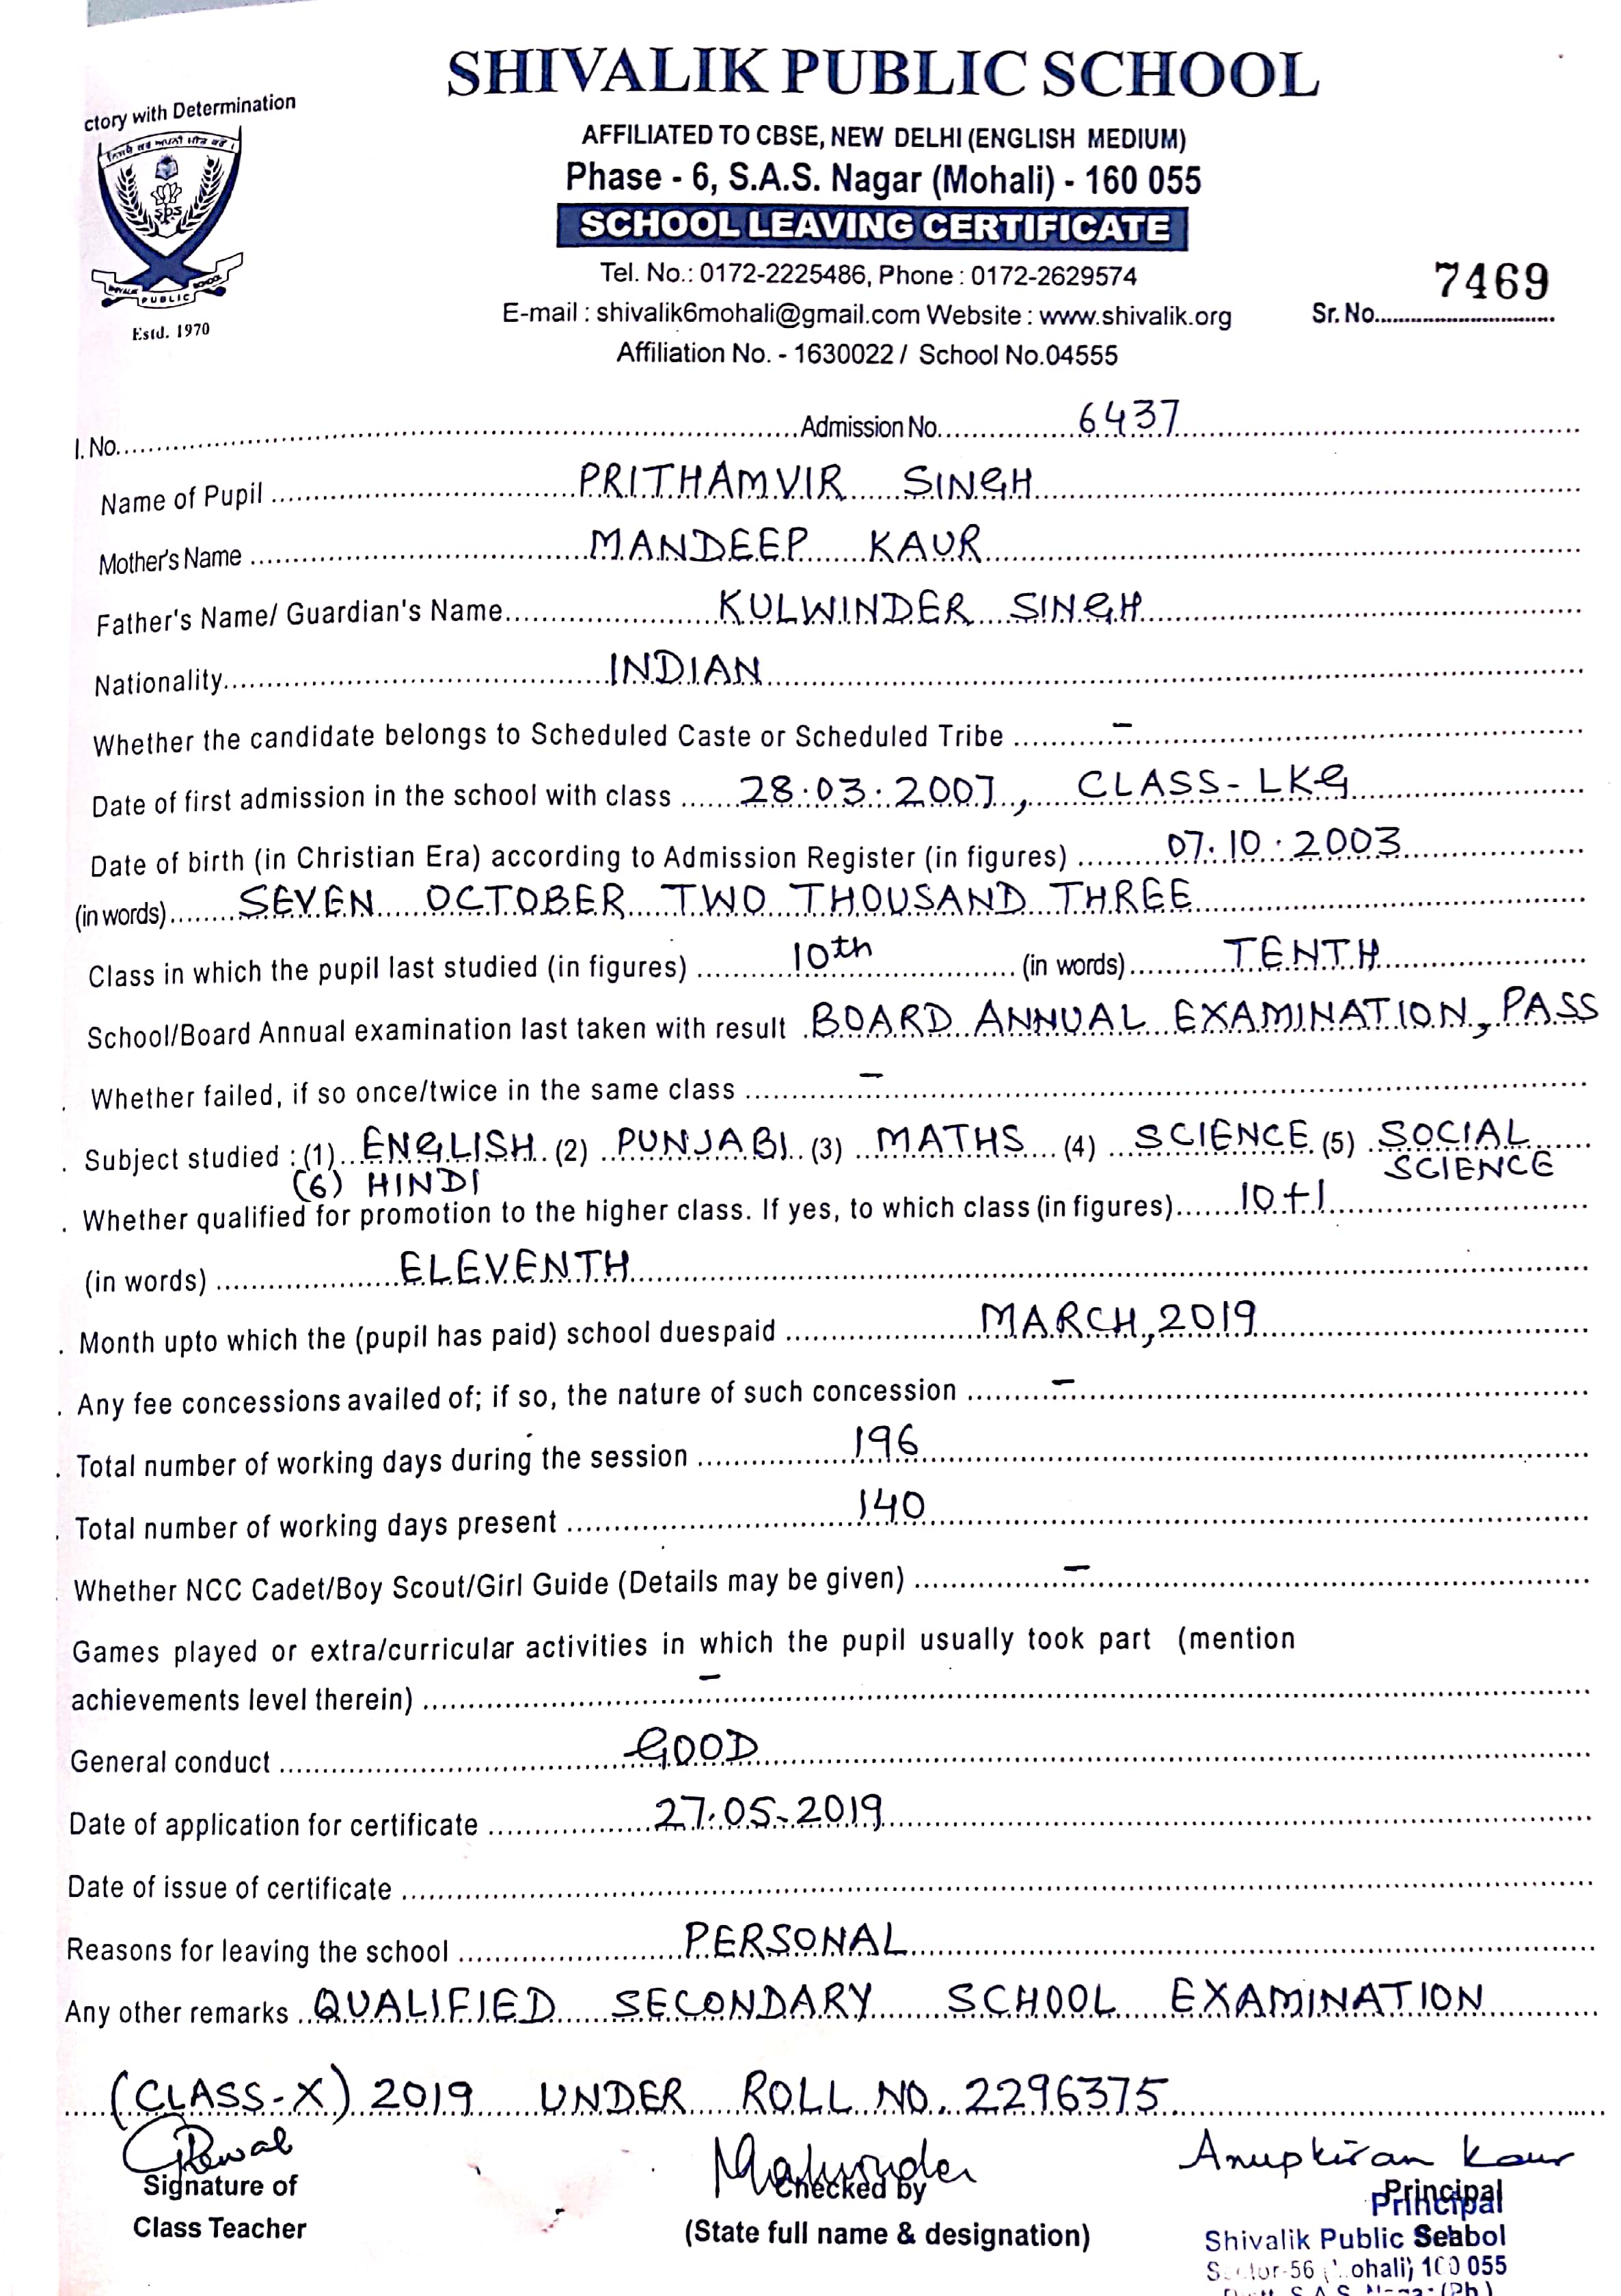 SHIVALIK PUBLIC SCHOOL
ctory with Determination
AFFILIATED TO CBSE, NEW DELHI (ENGLISH MEDIUM)
Phase - 6, S.A.S. Nagar (Mohali) - 160 055
SCHOOL LEAVING CERTIFICATE
Tel. No.: 0172-2225486, Phone : 0172-2629574
7469
E-mail : shivalik6mohali@gmail.com Website : www.shivalik.org
Sr. No.
SPS
SHIVALIK PUBLIC SCHOOL
Estd. 1970
Affiliation No. - 1630022 / School No.04555
I. No. Admission No. 6437
Name of Pupil PRITHAMVIR SINGH
Mother's Name MANDEEP KAUR
Father's Name/ Guardian's Name KULWINDER SINGH
Nationality INDIAN
Whether the candidate belongs to Scheduled Caste or Scheduled Tribe –
Date of first admission in the school with class 28.03.2007, CLASS-LKG
Date of birth (in Christian Era) according to Admission Register (in figures) 07.10.2003
(in words) SEVEN OCTOBER TWO THOUSAND THREE
Class in which the pupil last studied (in figures) 10th (in words) TENTH
School/Board Annual examination last taken with result BOARD ANNUAL EXAMINATION, PASS
. Whether failed, if so once/twice in the same class –
. Subject studied : (1) ENGLISH (2) PUNJABI (3) MATHS (4) SCIENCE (5) SOCIAL SCIENCE
(6) HINDI
. Whether qualified for promotion to the higher class. If yes, to which class (in figures) 10+1
(in words) ELEVENTH
. Month upto which the (pupil has paid) school duespaid MARCH, 2019
. Any fee concessions availed of; if so, the nature of such concession –
. Total number of working days during the session 196
. Total number of working days present 140
Whether NCC Cadet/Boy Scout/Girl Guide (Details may be given) –
Games played or extra/curricular activities in which the pupil usually took part (mention
achievements level therein) –
General conduct GOOD
Date of application for certificate 27.05.2019
Date of issue of certificate
Reasons for leaving the school PERSONAL
Any other remarks QUALIFIED SECONDARY SCHOOL EXAMINATION
(CLASS-X) 2019 UNDER ROLL NO. 2296375
Anupkiran Kaur
Signature of
Class Teacher
Checked by
(State full name & designation)
Principal
Principal
Shivalik Public School
55 (Mohali) 160 055